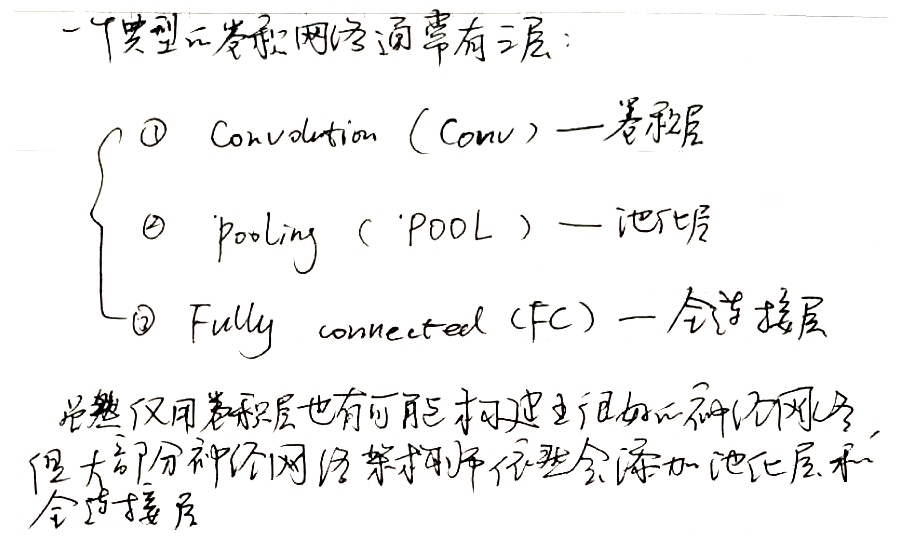 一个典型的卷积网络通常有三层：
① Convolution (Conv) — 卷积层
② pooling (POOL) — 池化层
③ Fully connected (FC) — 全连接层
虽然仅用卷积层也有可能构建出很好的神经网络,
但大部分神经网络架构师依然会添加池化层和
全连接层